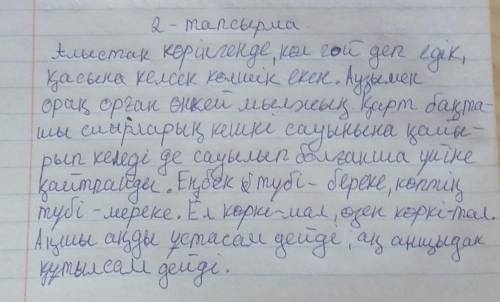 2 - тапсырма
Алыстан көрінгенде, көл ғой деп едік,
қасына келсек көлшік екен. Аузымен
орақ орған өңкей мылжың қарт бақта-
шы сиырларың кешкі сауынына қайы-
рып келеді де сауылып болғанша үйіне
қайтрайды. Еңбек түбі - береке, көптің
түбі - мереке. Ел көркі - мал, өзен көркі - тал.
Аңшы аңды ұстасам дейді, аң аңшыдан
құтылсам дейді.